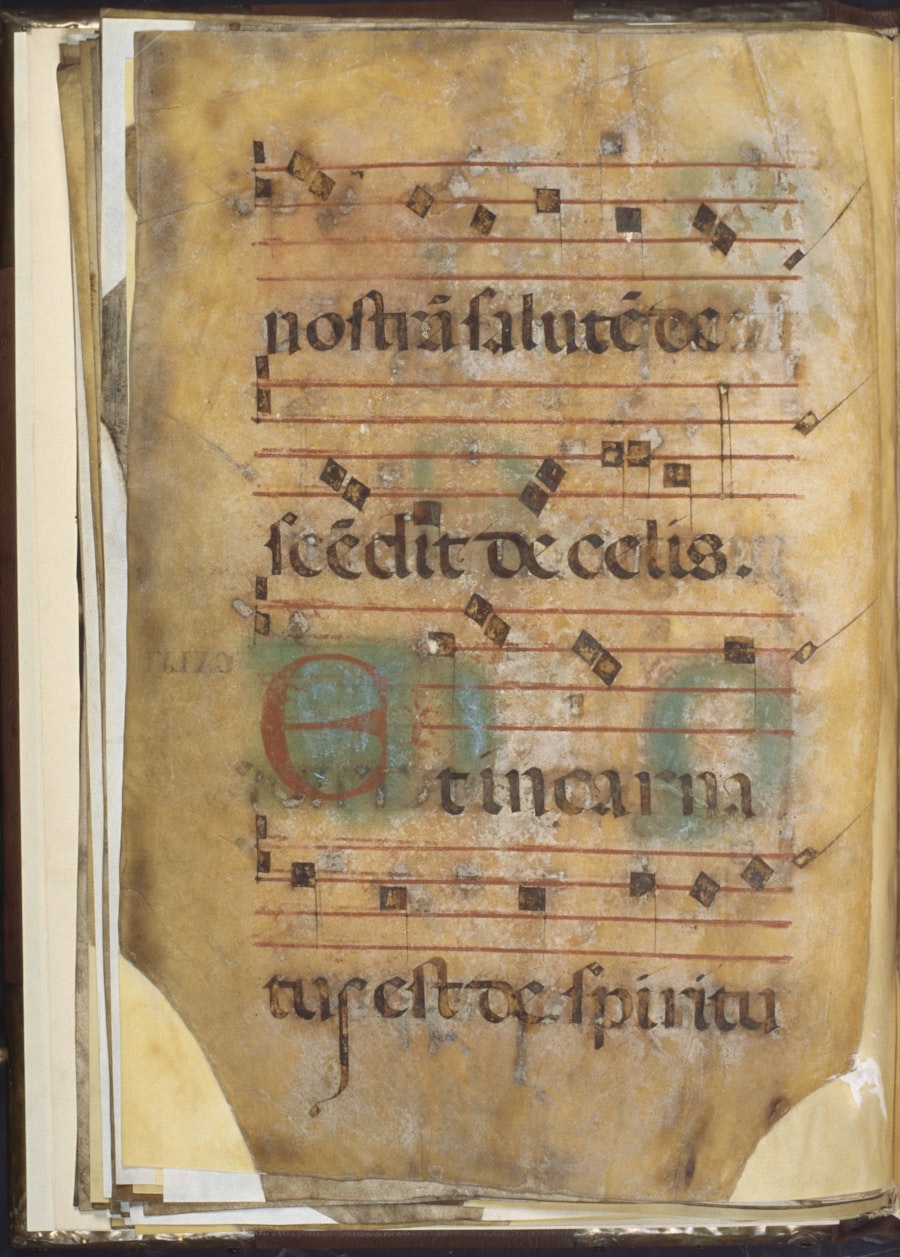 nostrā salutē de
scēdit de celis.
Et incarna
tus est de spiritu